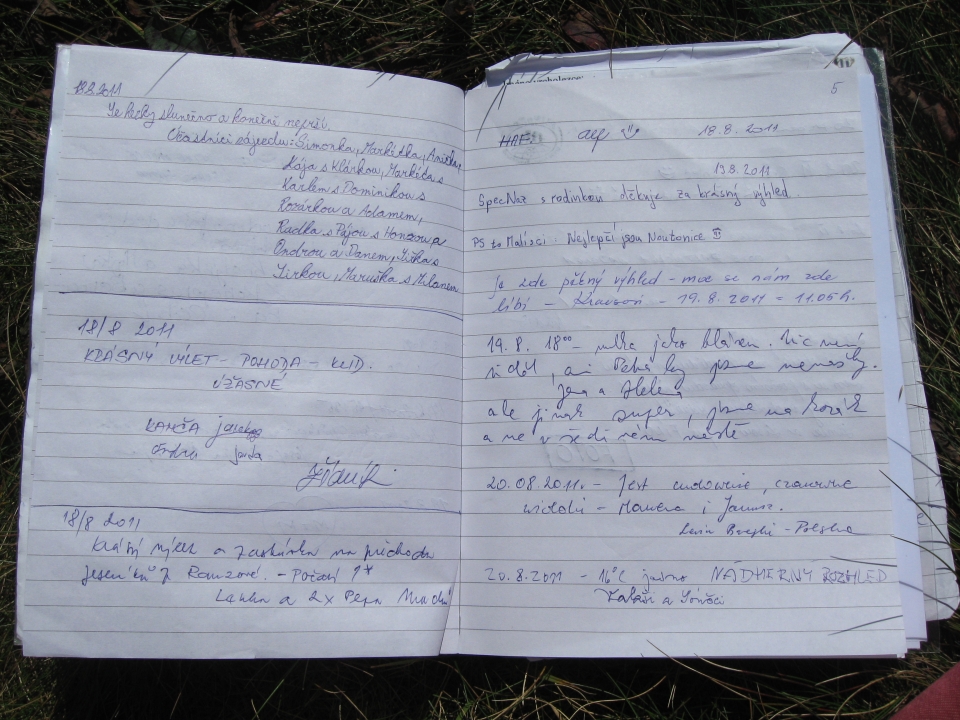 18.8.2011
Je hezky slunečno a konečně neprší.
Účastníci zájezdu: Šimonka, Markétka, Anička,
Kája s Klárkou, Markéta s
Karlem s Dominikou s
Rozárkou a Adamem,
Radka s Pájou s Honzou a
Ondrou a Danem, Jitka s
Jirkou, Maruška s Milanem
18/8 2011
KRÁSNÝ VÝLET - POHODA - KLID.
ÚŽASNÉ
KAMČA
18/8 2011
Krásný výlet a
Jeseníků z Ramzové. - Počasí 1*
Lenka a 2x Pepa
5
18.8.2011
19.8.2011
SpecNaz s rodinkou děkuje za krásný výhled
PS to Malísci. Nejlepší jsou Noutonice
Je zde pěkný výhled - moc se nám zde
líbí - 19.8.2011 - 11.05 h.
19.8. 18⁰⁰ - mlha jako blázen. Nic není
vidět, ani jsme nenašly.
Jana a Helena
ale jinak super, jsme na horách
a ne v šedivém městě
20.08.2011. - Jest cudownie, czarowne
widoki - i Janusz.
- Polska
20.8.2011 - 16°C jasno NÁDHERNÝ ROZHLED